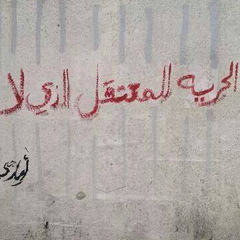 الحرية للمعتقل الذي لا